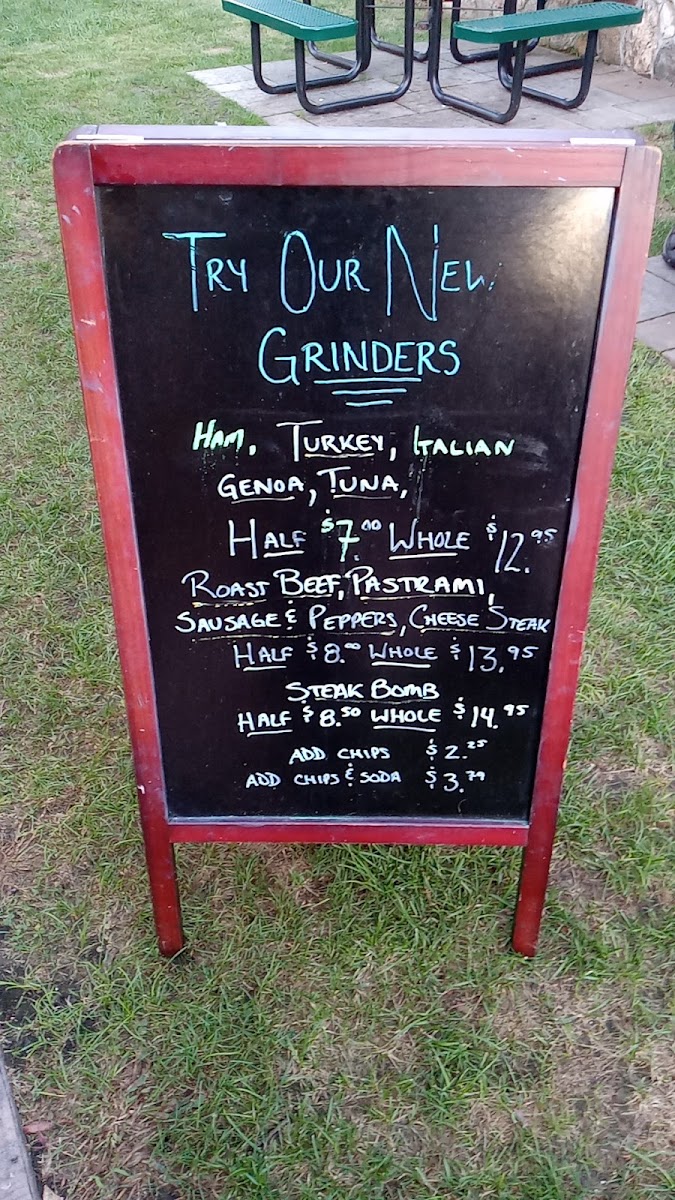 TRY OUR NEW
GRINDERS
HAM, TURKEY, ITALIAN
GENOA, TUNA,
HALF $7.00 WHOLE $12.95
ROAST BEEF, PASTRAMI,
SAUSAGE & PEPPERS, CHEESE STEAK
HALF $8.00 WHOLE $13.95
STEAK BOMB
HALF $8.50 WHOLE $14.95
ADD CHIPS $2.25
ADD CHIPS & SODA $3.79